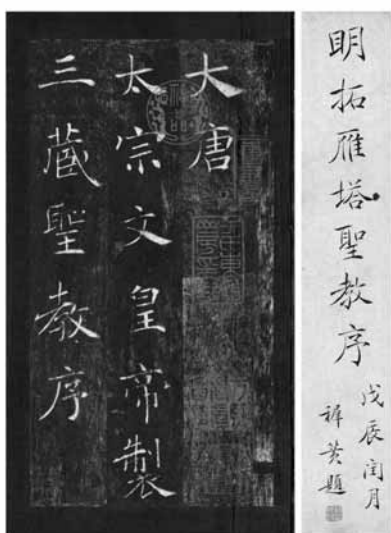 明拓雁塔聖教序
戊辰閏月
題
大唐
太宗文皇帝製
三藏聖教序